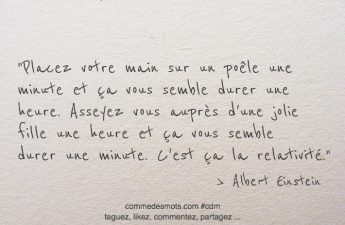 "Placez votre main sur un poêle une
minute et ça vous semble durer une
heure. Asseyez vous auprès d'une jolie
fille une heure et ça vous semble
durer une minute. C'est ça la relativité."
> Albert Einstein
commedesmots.com #cdm
taguez, likez, commentez, partagez ...